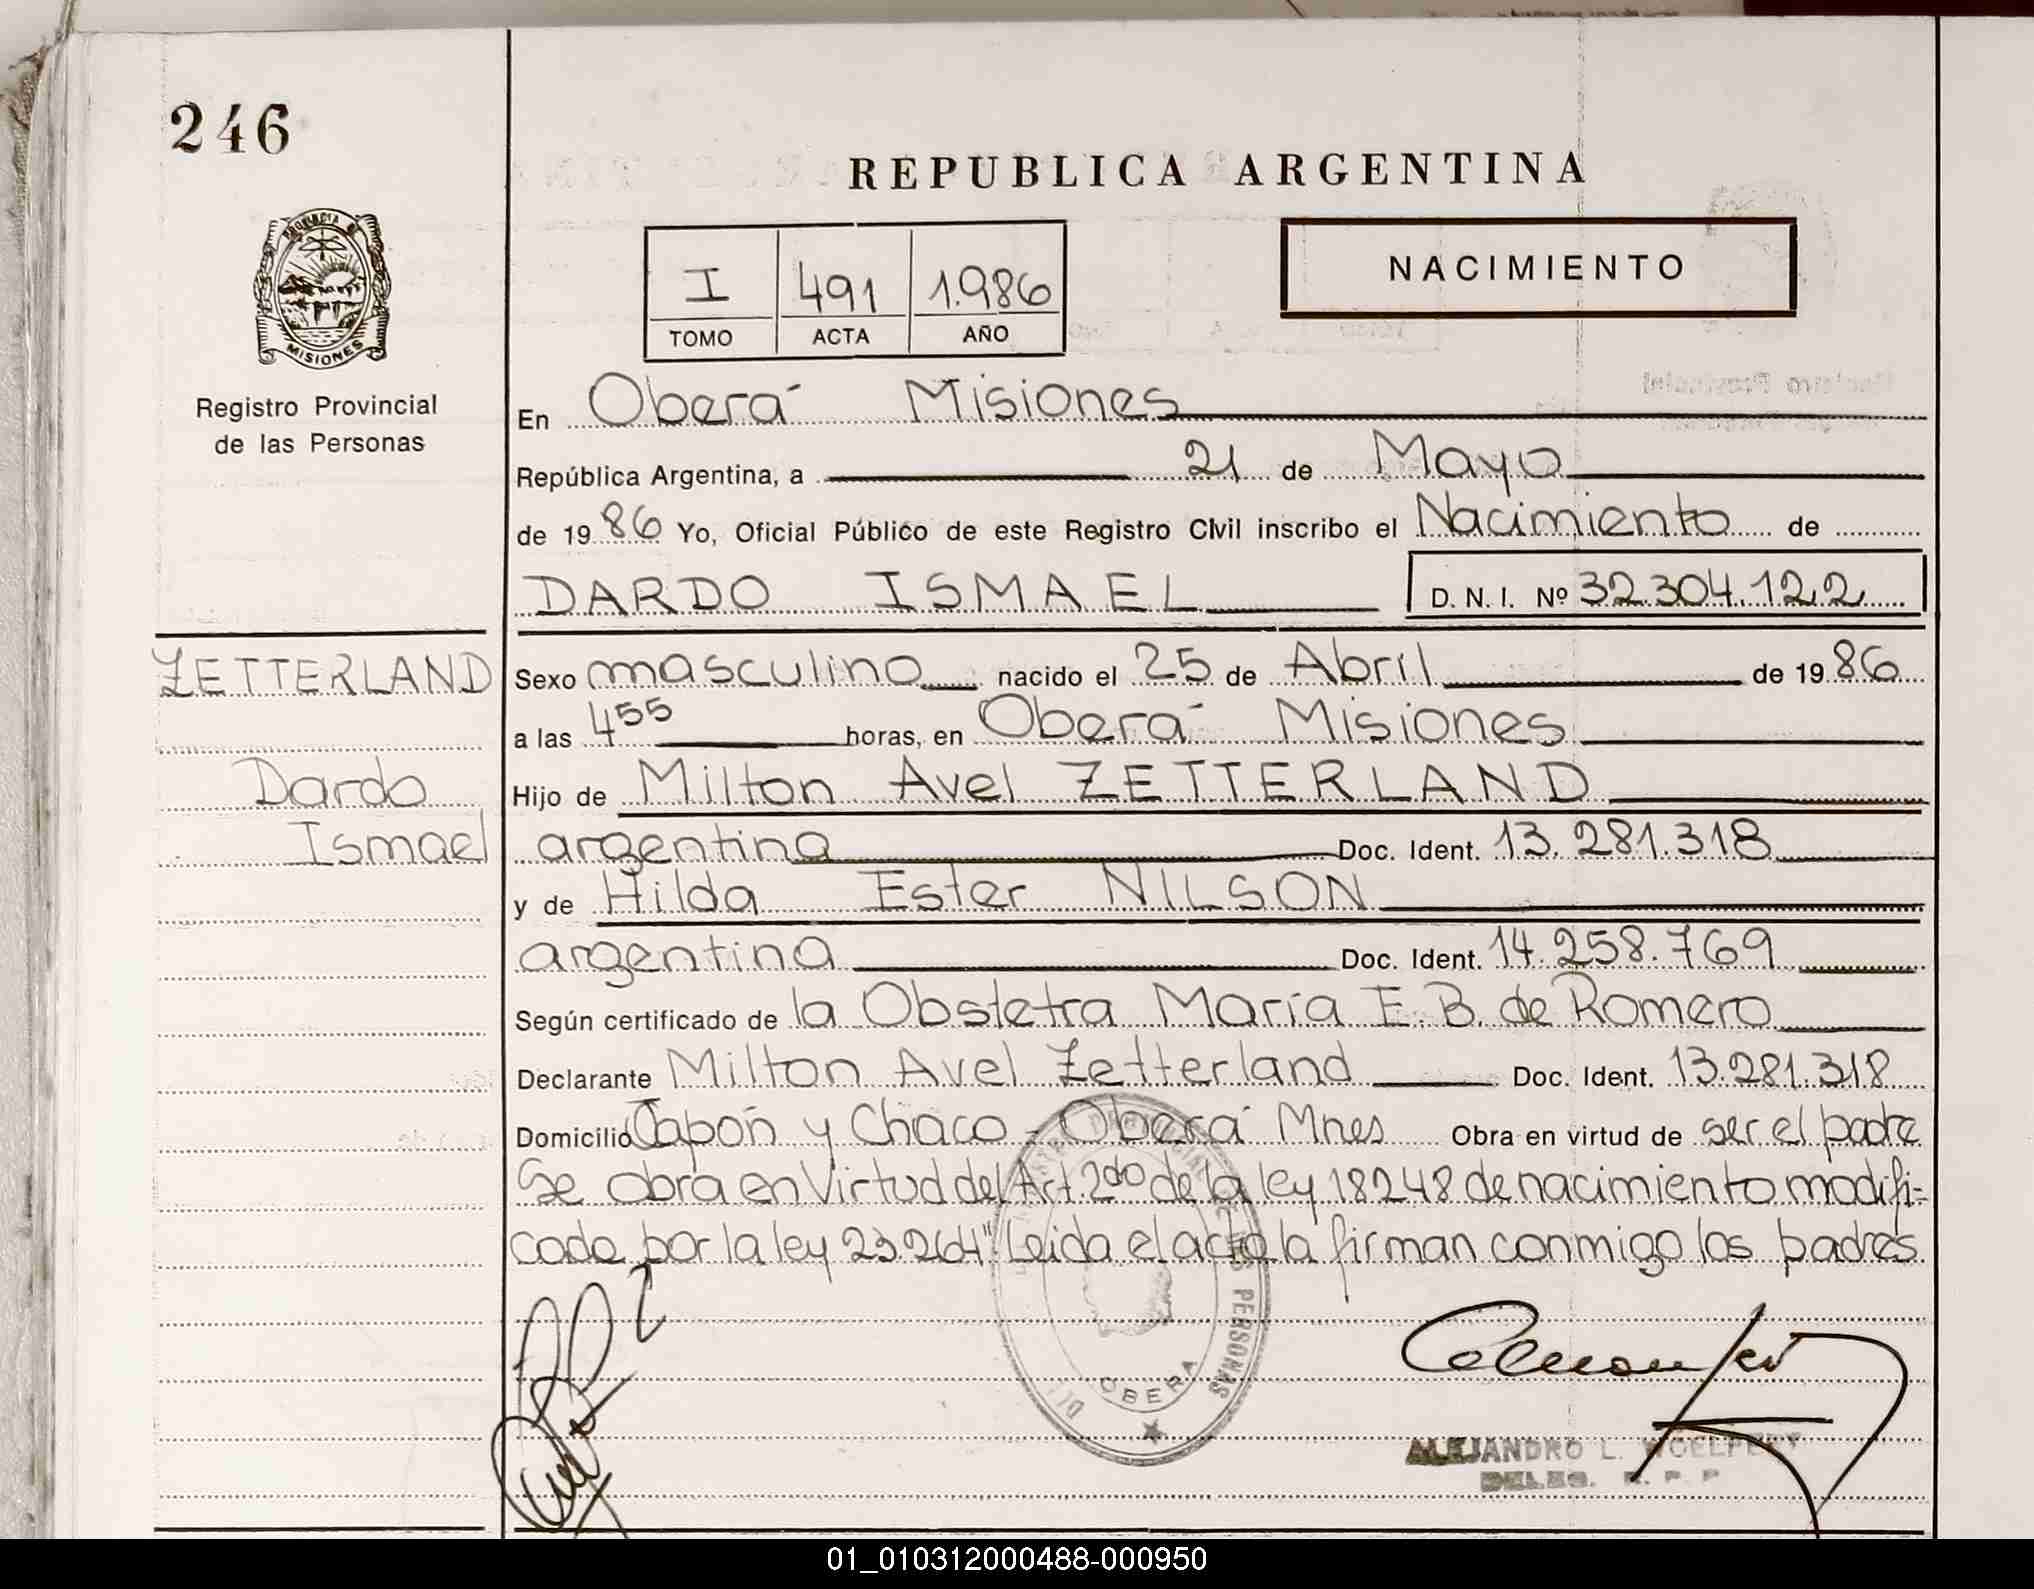 246
REPUBLICA ARGENTINA
PROVINCIA D
MISIONES
Registro Provincial
de las Personas
I 491 1.986
TOMO ACTA AÑO
NACIMIENTO
En Oberá Misiones
República Argentina, a 21 de Mayo
de 1986 Yo, Oficial Público de este Registro Civil inscribo el Nacimiento de
DARDO ISMAEL D. N. I. Nº 32.304.122
ZETTERLAND
Sexo masculino nacido el 25 de Abril de 1986
a las 4 55 horas, en Oberá Misiones
Dardo
Hijo de Milton Avel ZETTERLAND
Ismael
argentina Doc. Ident. 13.281.318
y de Hilda Ester NILSON
argentina Doc. Ident. 14.258.769
Según certificado de la Obstetra María E. B. de Romero
Declarante Milton Avel Zetterland Doc. Ident. 13.281.318
Domicilio Japón y Chaco - Oberá Mnes Obra en virtud de ser el padre
Se obra en Virtud del Art. 2do de la ley 18248 de nacimiento modifi=
cada por la ley 23.264" Leida el acta la firman conmigo los padres
REGISTRO PROVINCIAL DE LAS PERSONAS
OBERA
ALEJANDRO L. WOELPERT
DELEG. R. P. P
01_010312000488-000950